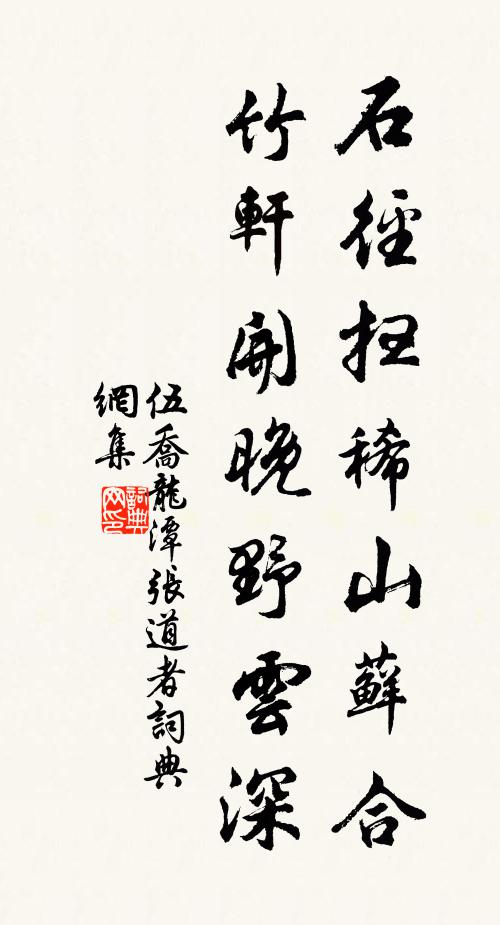 石徑掃稀山蘚合
竹軒開晚野雲深
伍喬龍潭張道者詞典
網集
詞典
网印